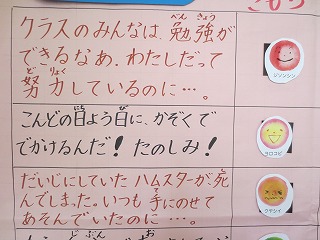 クラスのみんなは、勉強が
べんきょう
できるなあ。わたしだって
どりょく
努力しているのに…。
ジソンシン
にちび
こんどの日よう日に、かぞくで
でかけるんだ！たのしみ！
ヨロコビ
し
だいじにしていたハムスターが、死
んでしまった。いつも手にのせて
あそんでいたのに…。
クヤシイ